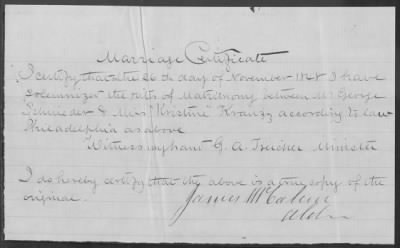 Marriage Certificate
I certify that the 26th day of November 1848 I have
solemnized the rites of Matrimony between Mr George
Schneider & Miss "Kristine" Krauzz according to law
Philadelphia as above
Witness my hand G. A. Minister
I do hereby certify that the above is a true copy of the
original.
James